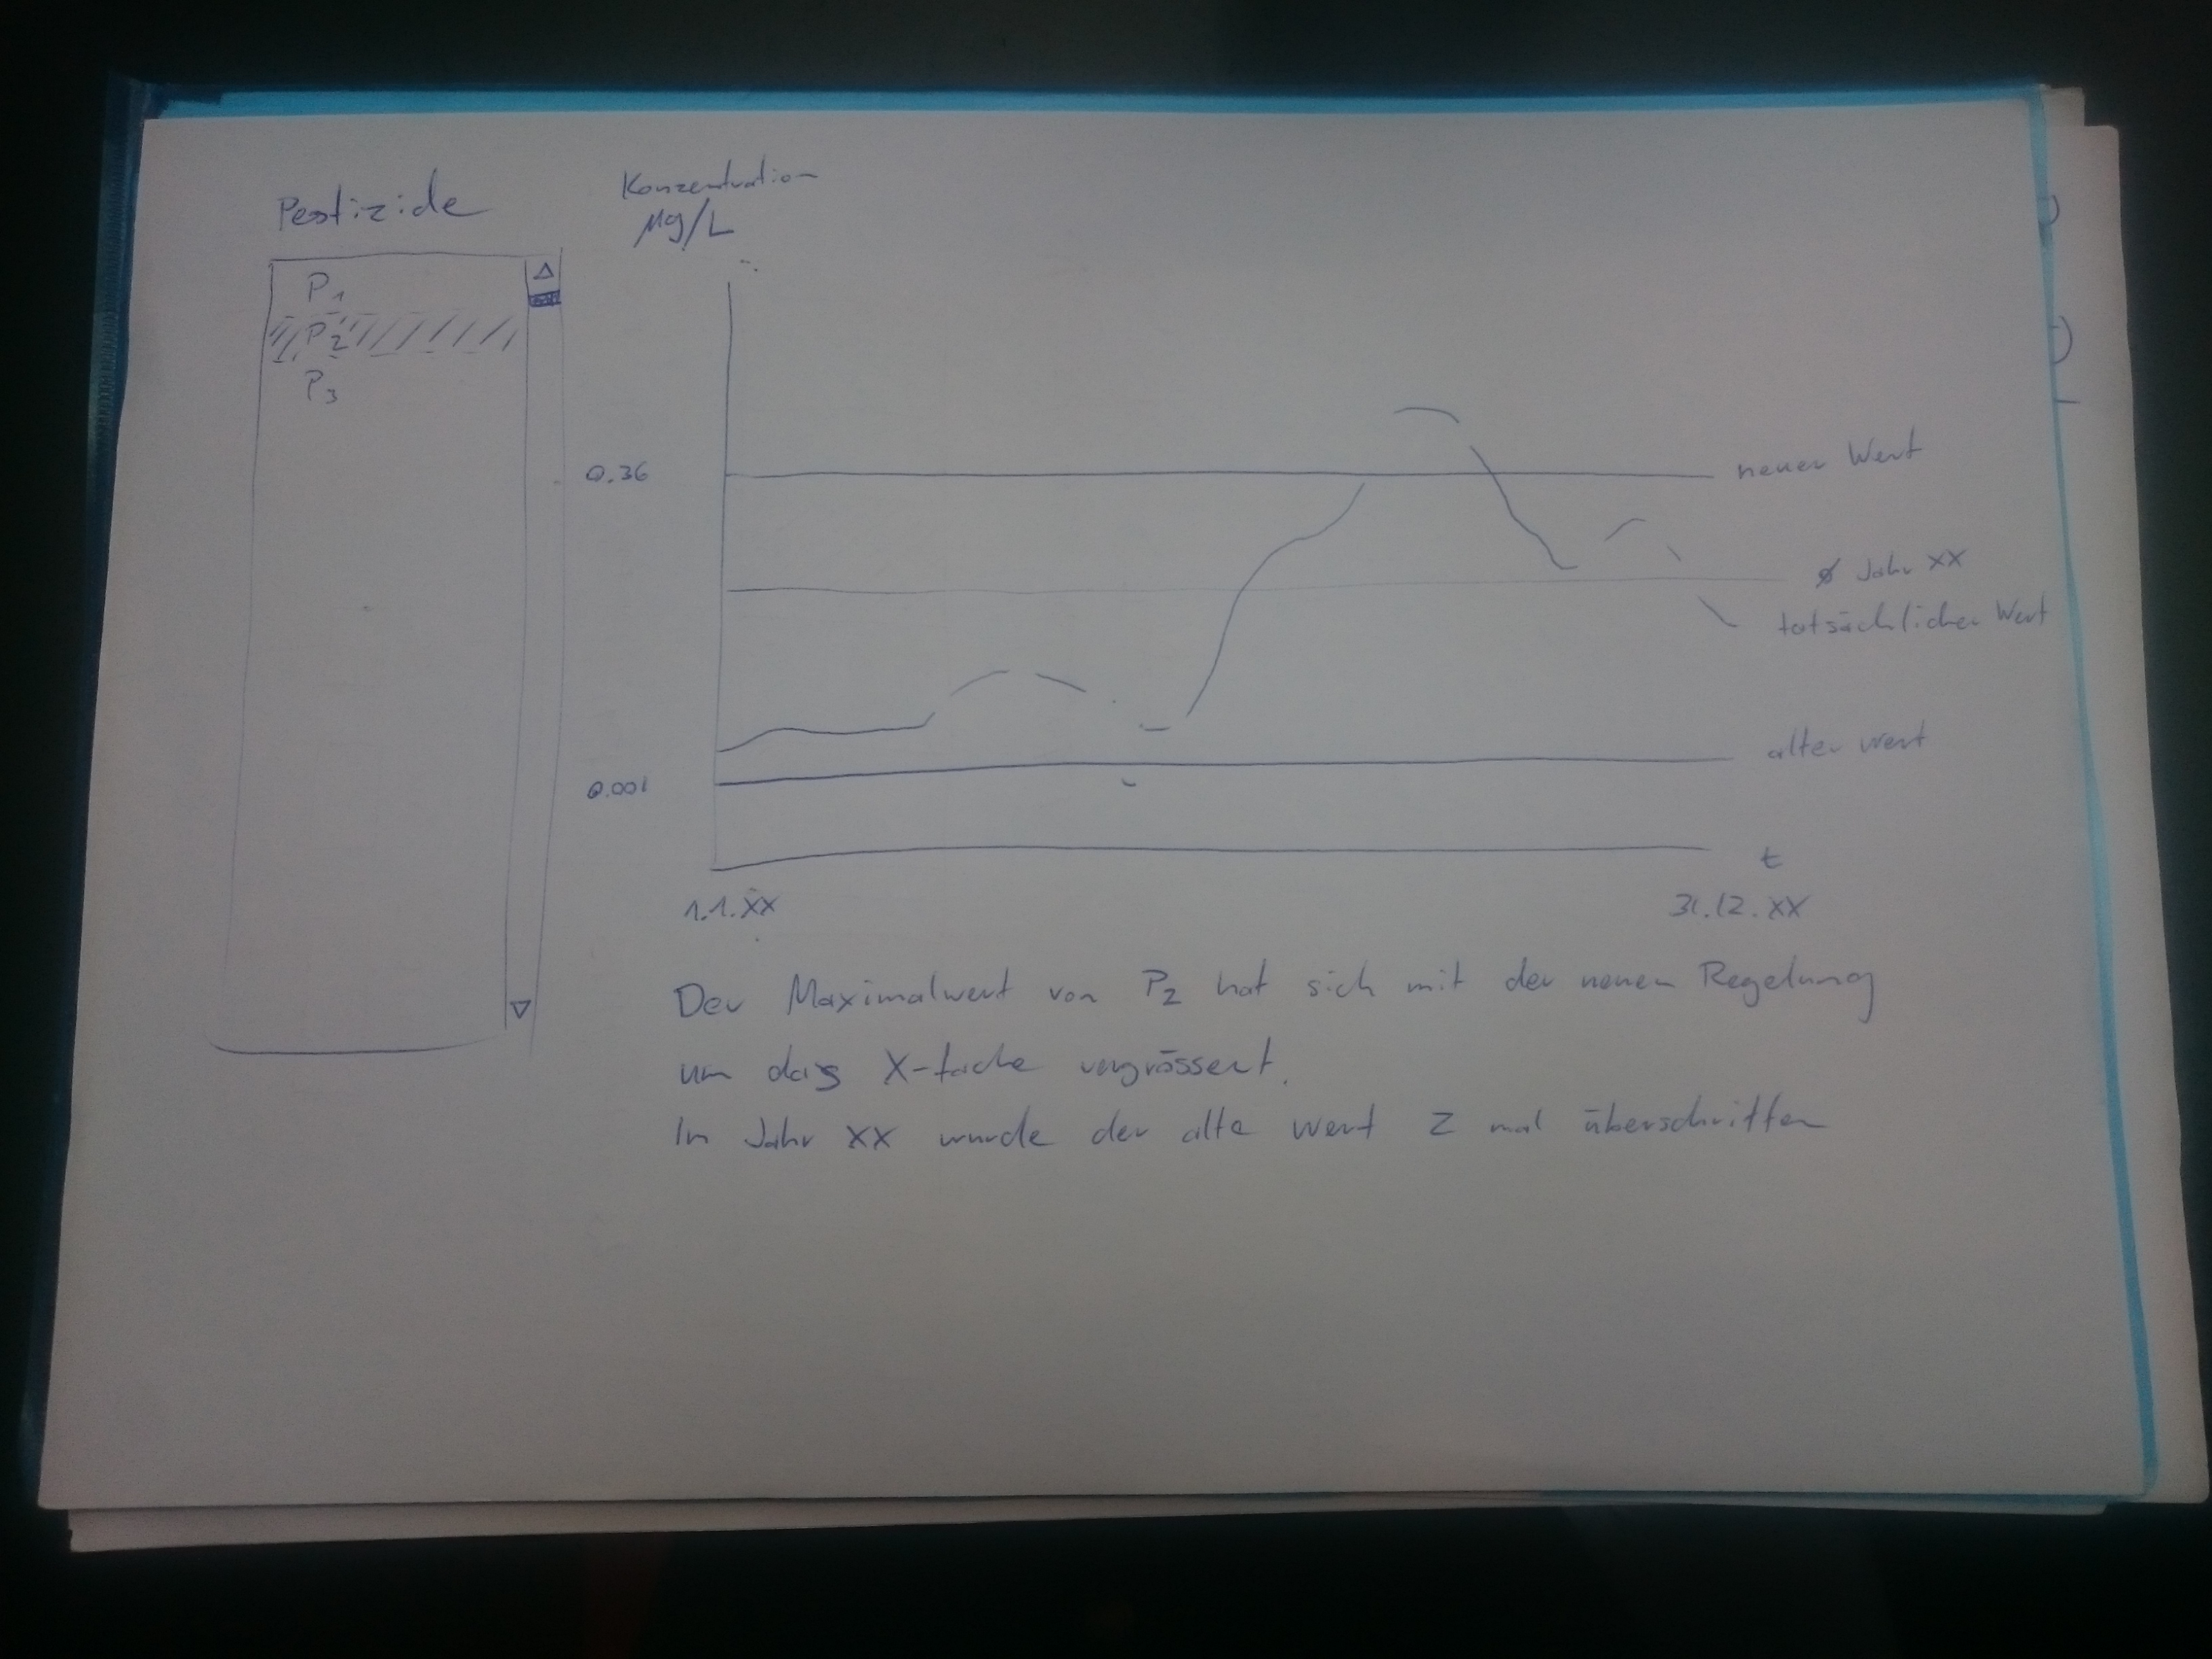 Pestizide
P1
P2
P3
Konzentration
µg/L
0.36
neuer Wert
ø Jahr XX
tatsächlicher Wert
alter Wert
0.001
t
1.1.XX
31.12.XX
Der Maximalwert von P2 hat sich mit der neuen Regelung
um das X-fache vergrössert.
In Jahr XX wurde der alte Wert Z mal überschritten